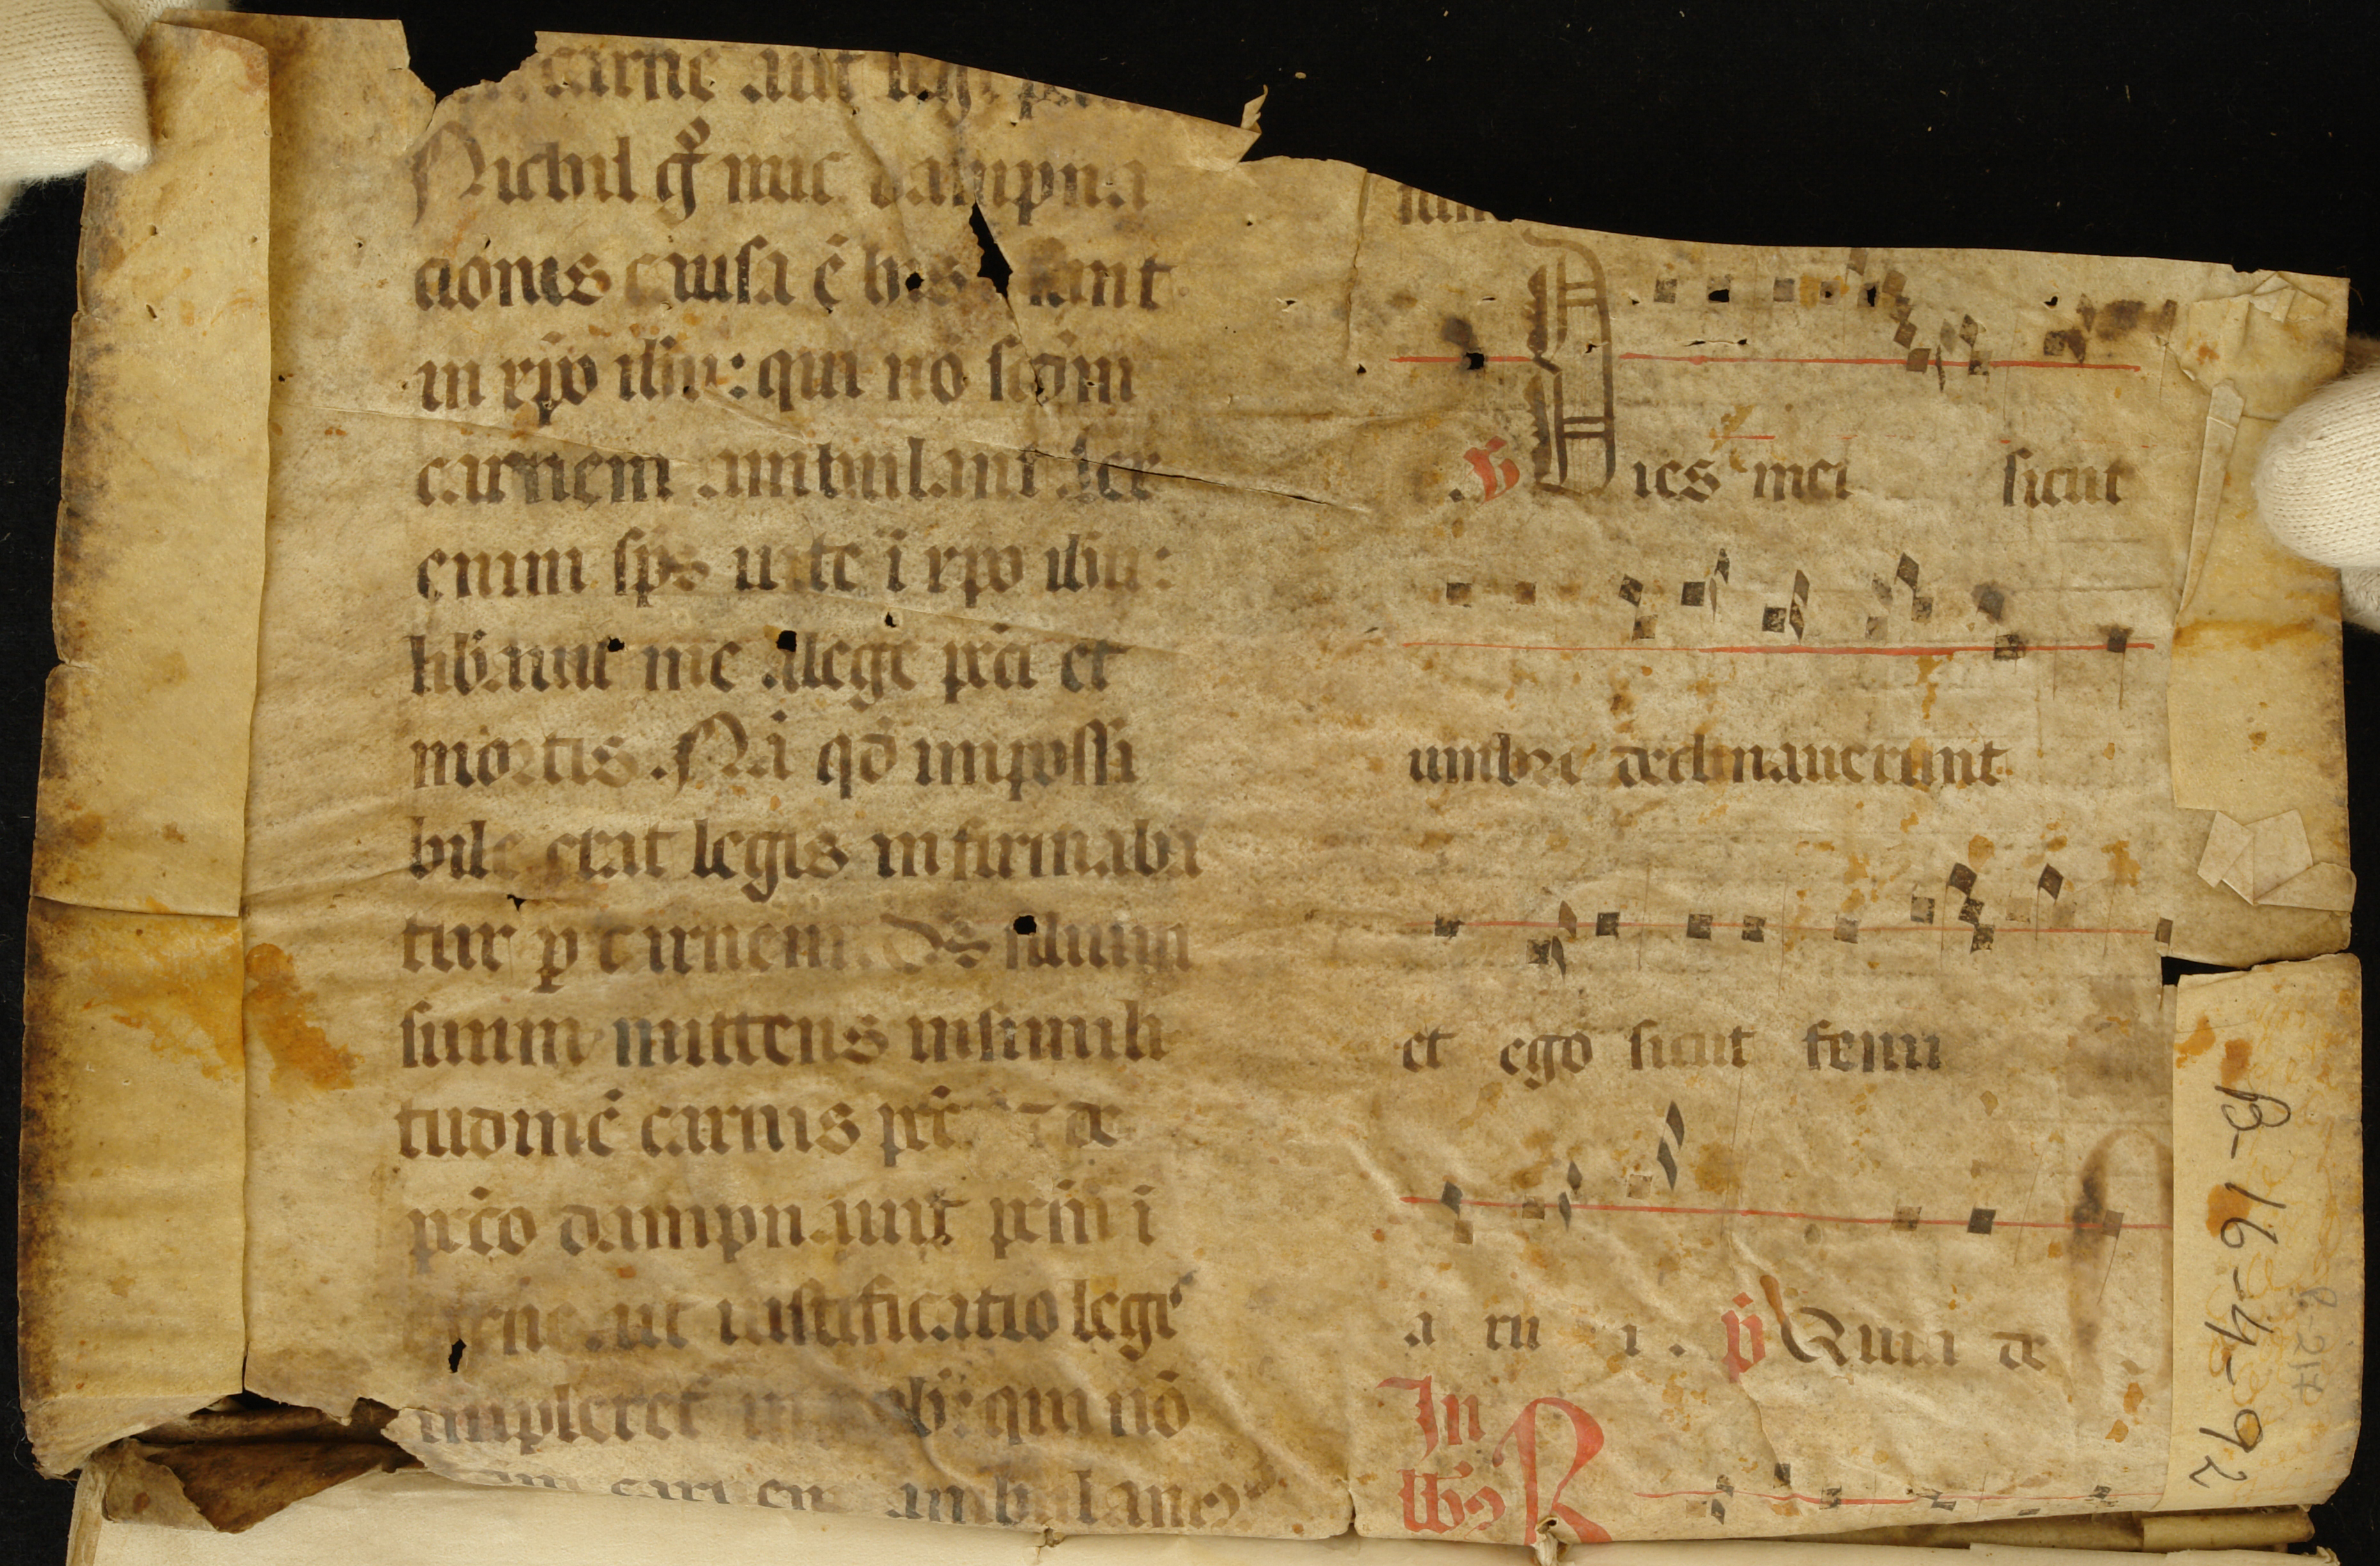 carne aut legi
Nichil g̊ nuc dampna
cionis causa ē his sunt
in xp̄o ih̄u: qui nō scd̄m
carnem ambulant Lex
enim sp̄s uite ī xp̄o ih̄u:
lib̄auit me alege pc̄ti et
mortis. Nā qd̄ impossi
bile erat legis infirmaba
tur p carnem. Ds̄ filium
suum mittens insimili
tudinē carnis pc̄ti ⁊ de
pc̄co dampnauit pc̄m ī
carne. ut iustificatio legis
impleret᷑ in nob̄: qui nō
carnem ambulamꝰ
V Dies mei sicut
umbre declinauerunt
et ego sicut fenu
a ru i. p̄ Quia de
In
lbꝰ R
B-16-4-92